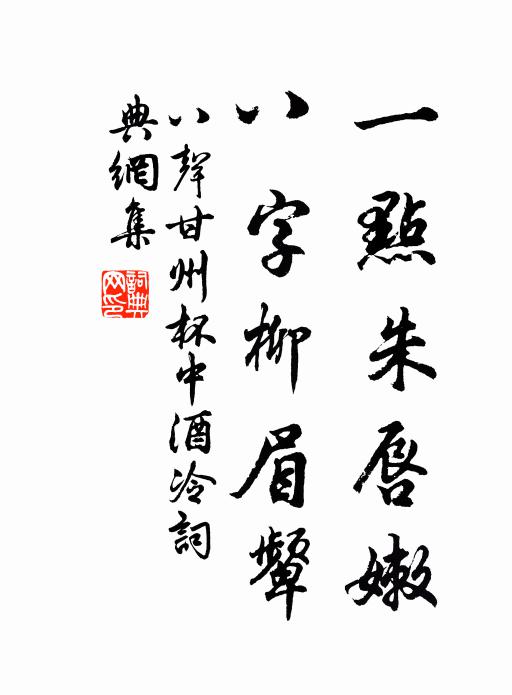 一點朱唇嫩
八字柳眉顰
八聲甘州杯中酒冷詞
典網集
詞典網印